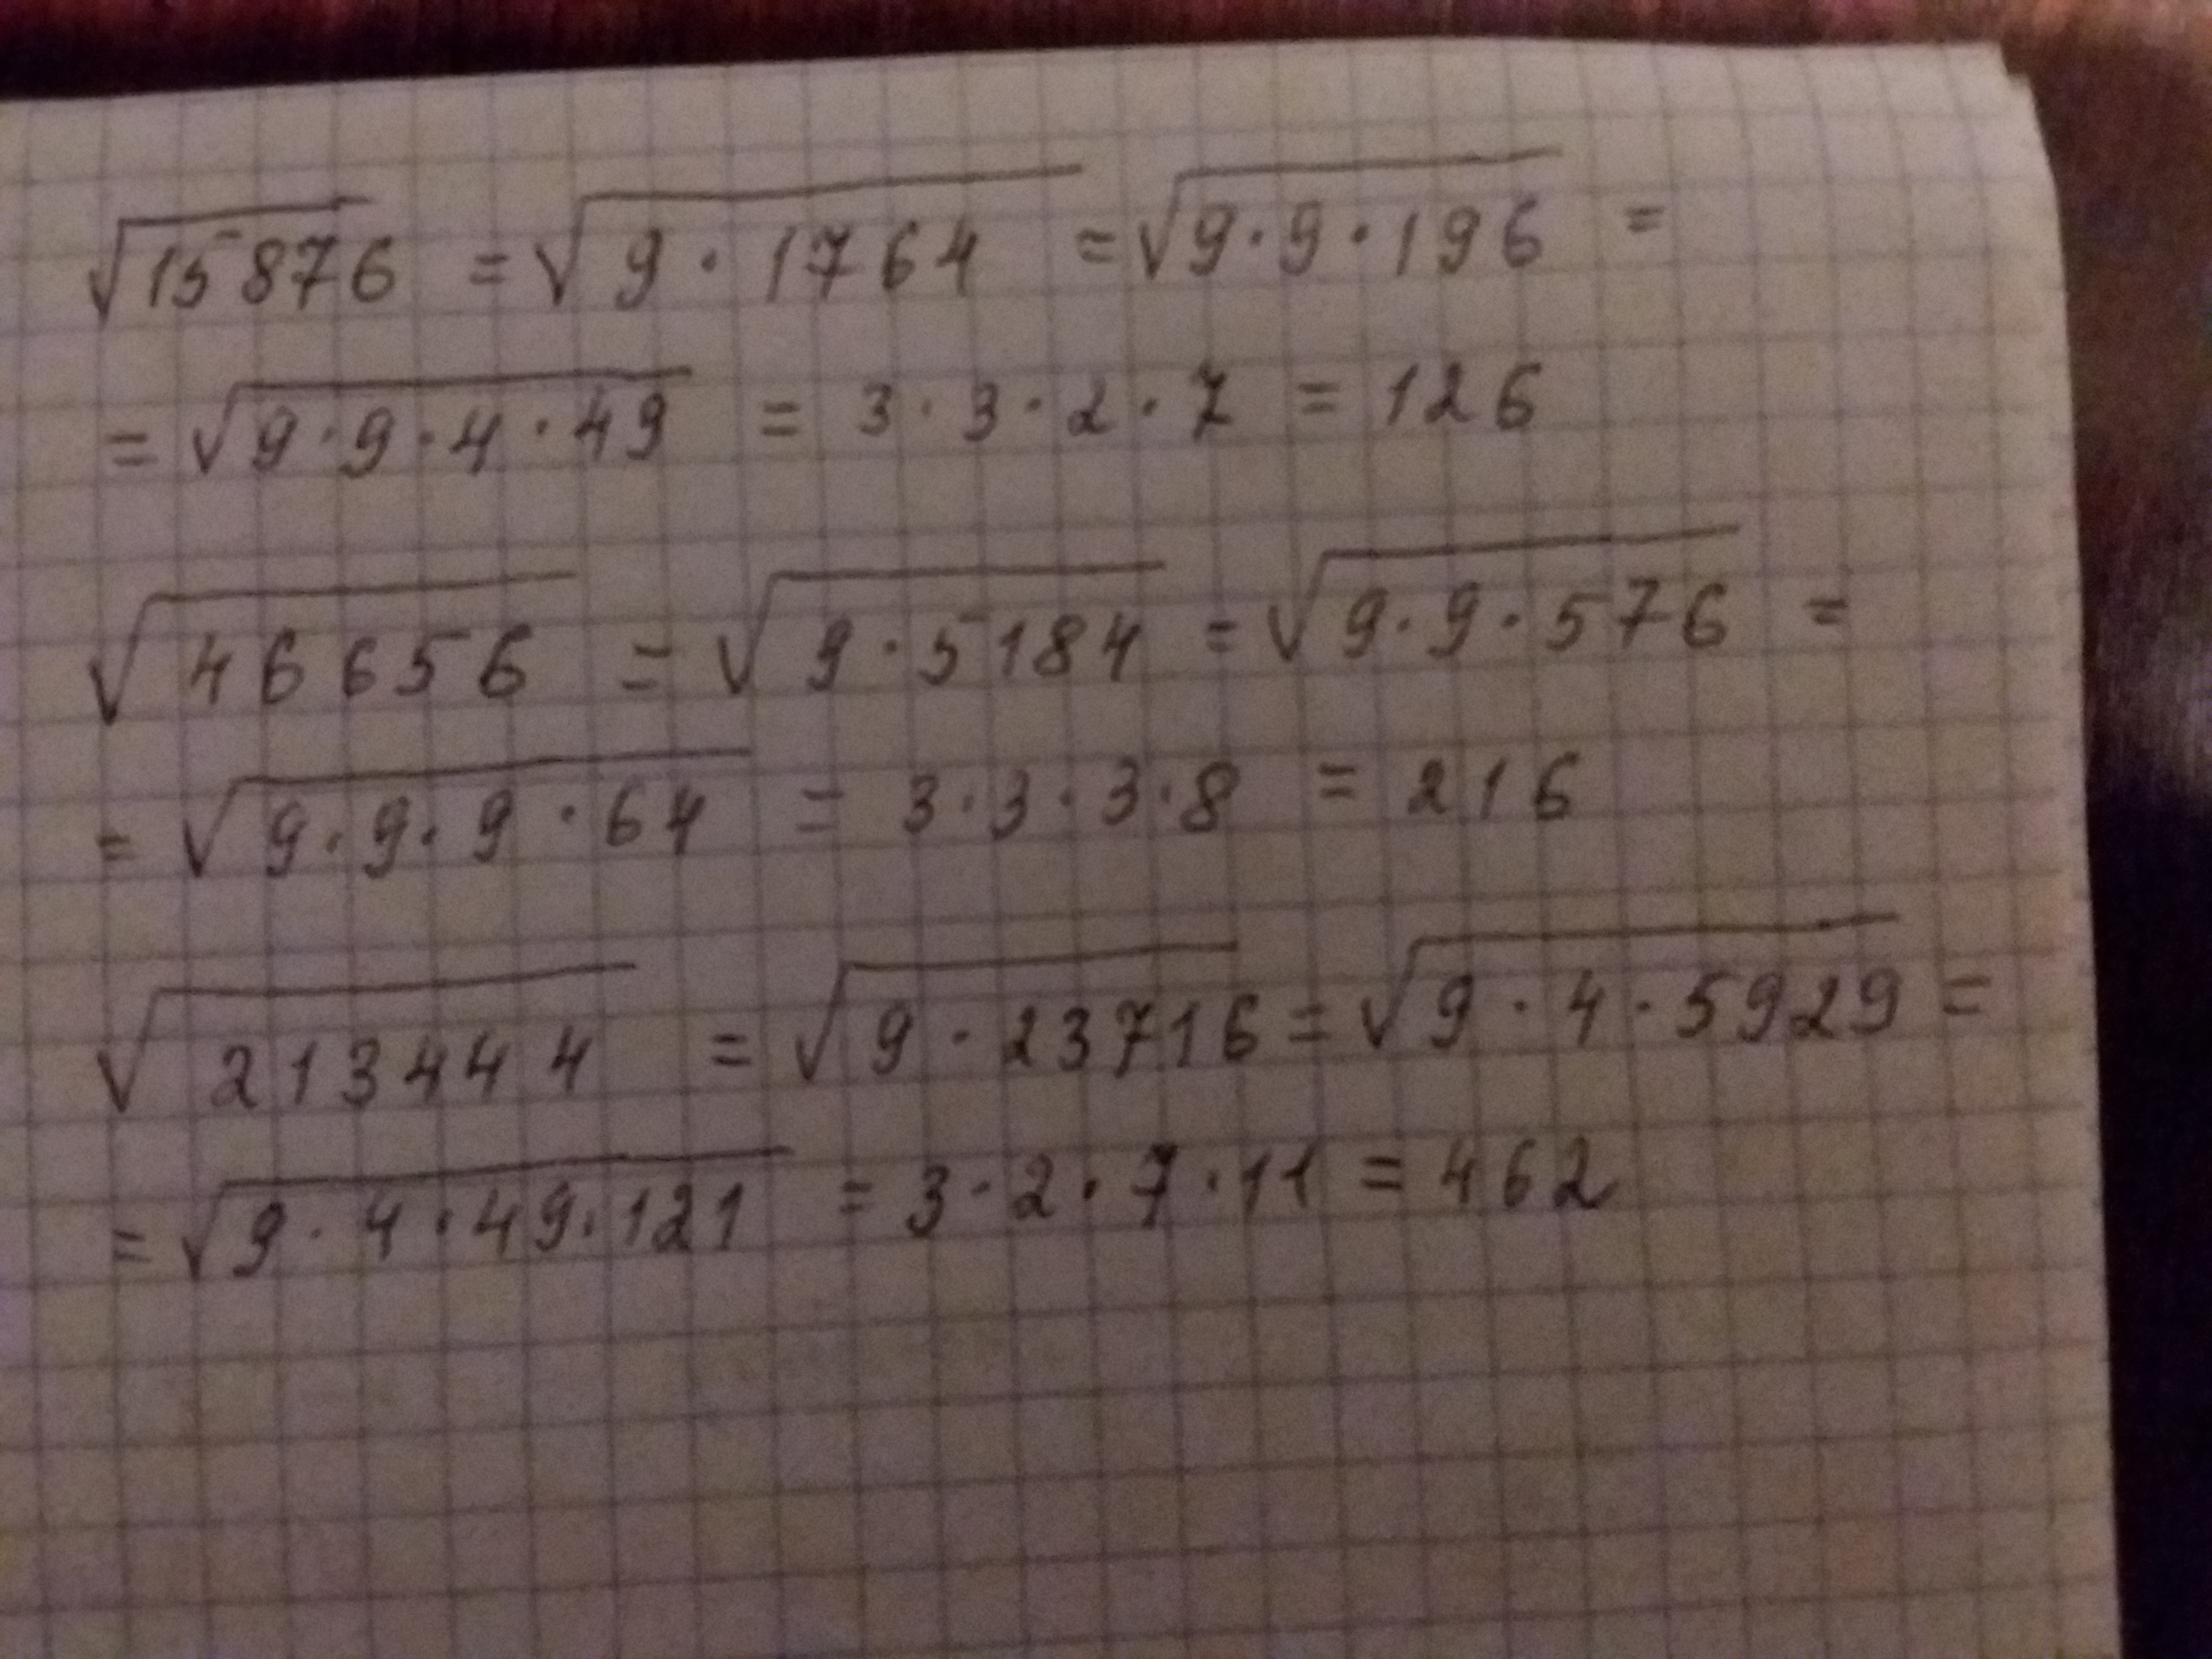 √15876 = √9·1764 = √9·9·196 =
= √9·9·4·49 = 3·3·2·7 = 126
√46656 = √9·5184 = √9·9·576 =
= √9·9·9·64 = 3·3·3·8 = 216
√213444 = √9·23716 = √9·4·5929 =
= √9·4·49·121 = 3·2·7·11 = 462